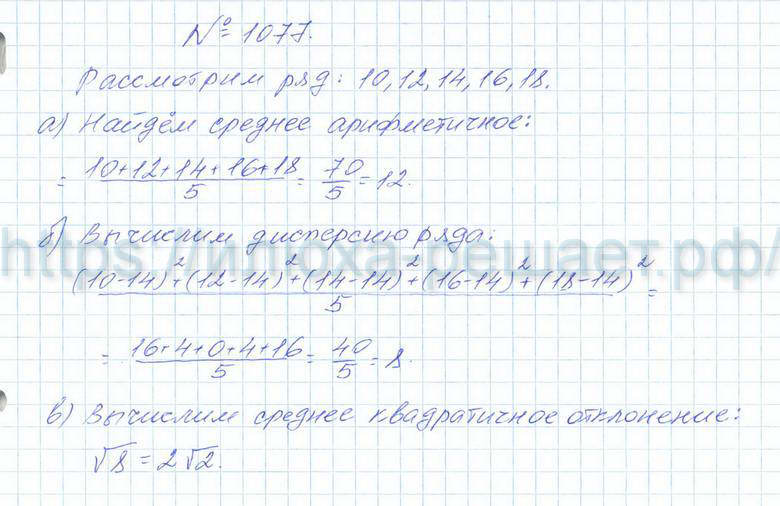 № 1077.
Рассмотрим ряд: 10, 12, 14, 16, 18.
а) Найдём среднее арифметичное:
= (10+12+14+16+18)/5 = 70/5 = 12.
б) Вычислим дисперсию ряда:
https://илюха-решает.рф/
((10-14)²+(12-14)²+(14-14)²+(16-14)²+(18-14)²)/5 =
= (16+4+0+4+16)/5 = 40/5 = 8.
в) Вычислим среднее квадратичное отклонение:
√8 = 2√2.